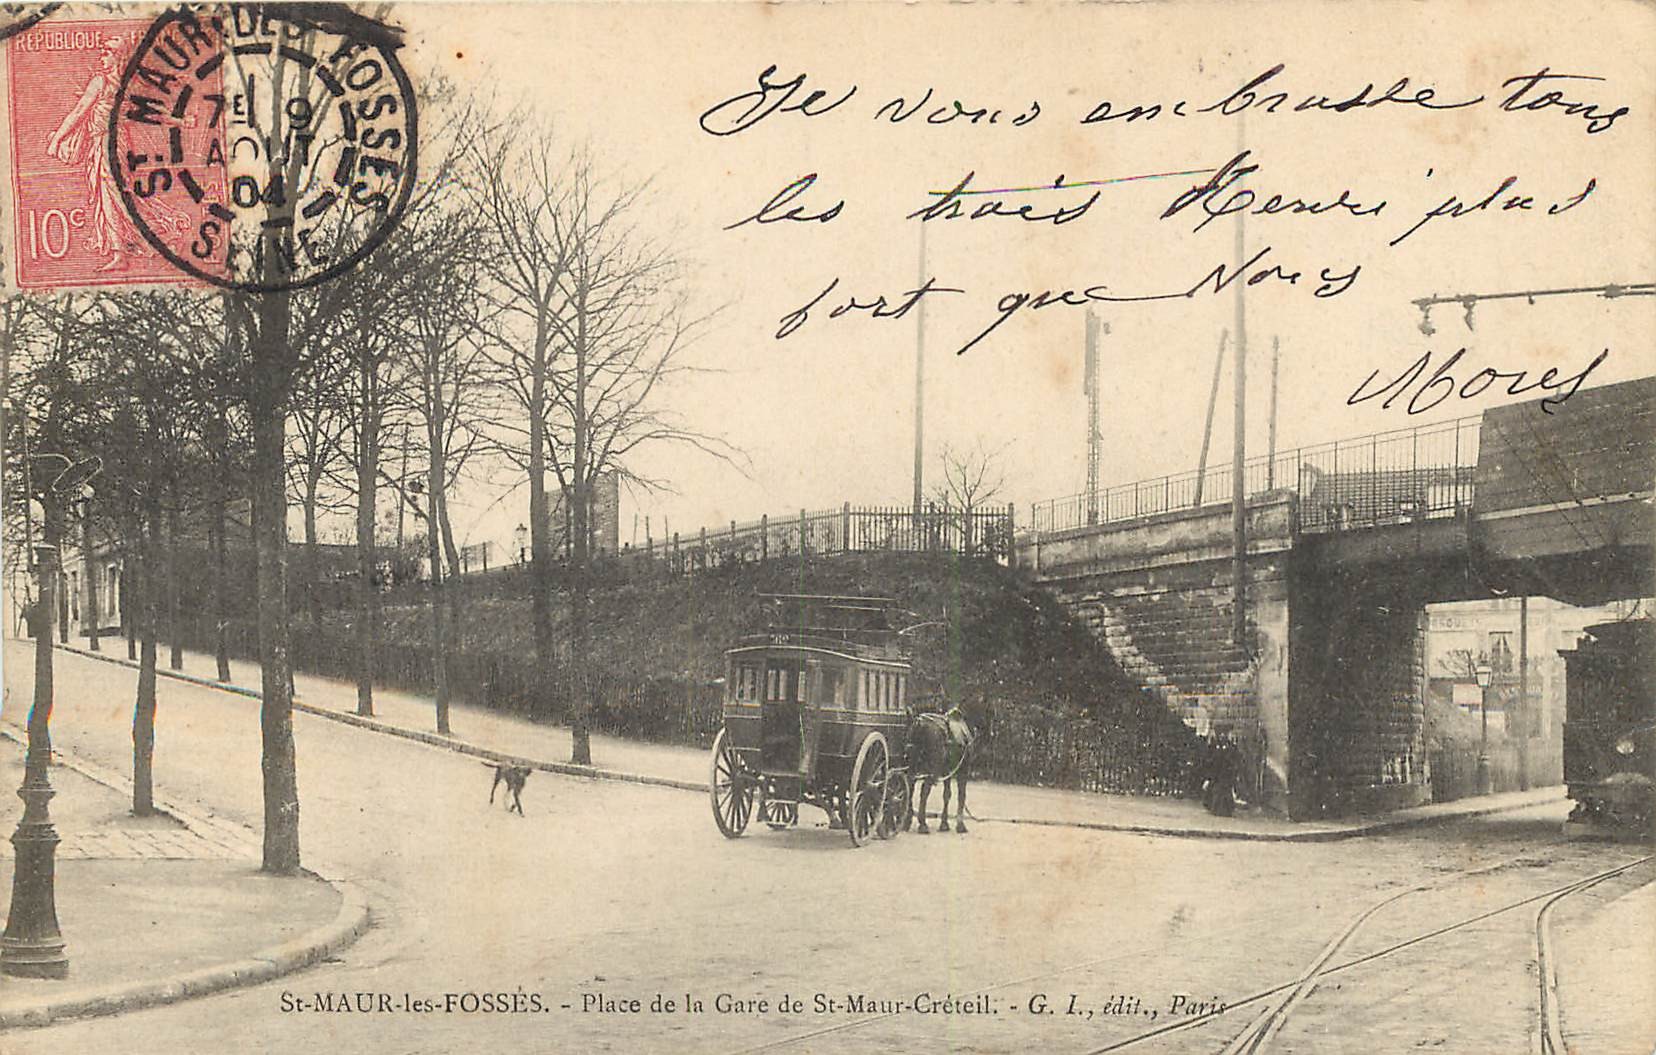 RÉPUBLIQUE FR
10c
ST MAUR-DES-FOSSES
7E 9
AOUT
04
SEINE
Je vous embrasse tous
les trois Henri plus
fort que Nous
762
St-MAUR-les-FOSSÉS. - Place de la Gare de St-Maur-Créteil. - G. I., édit., Paris